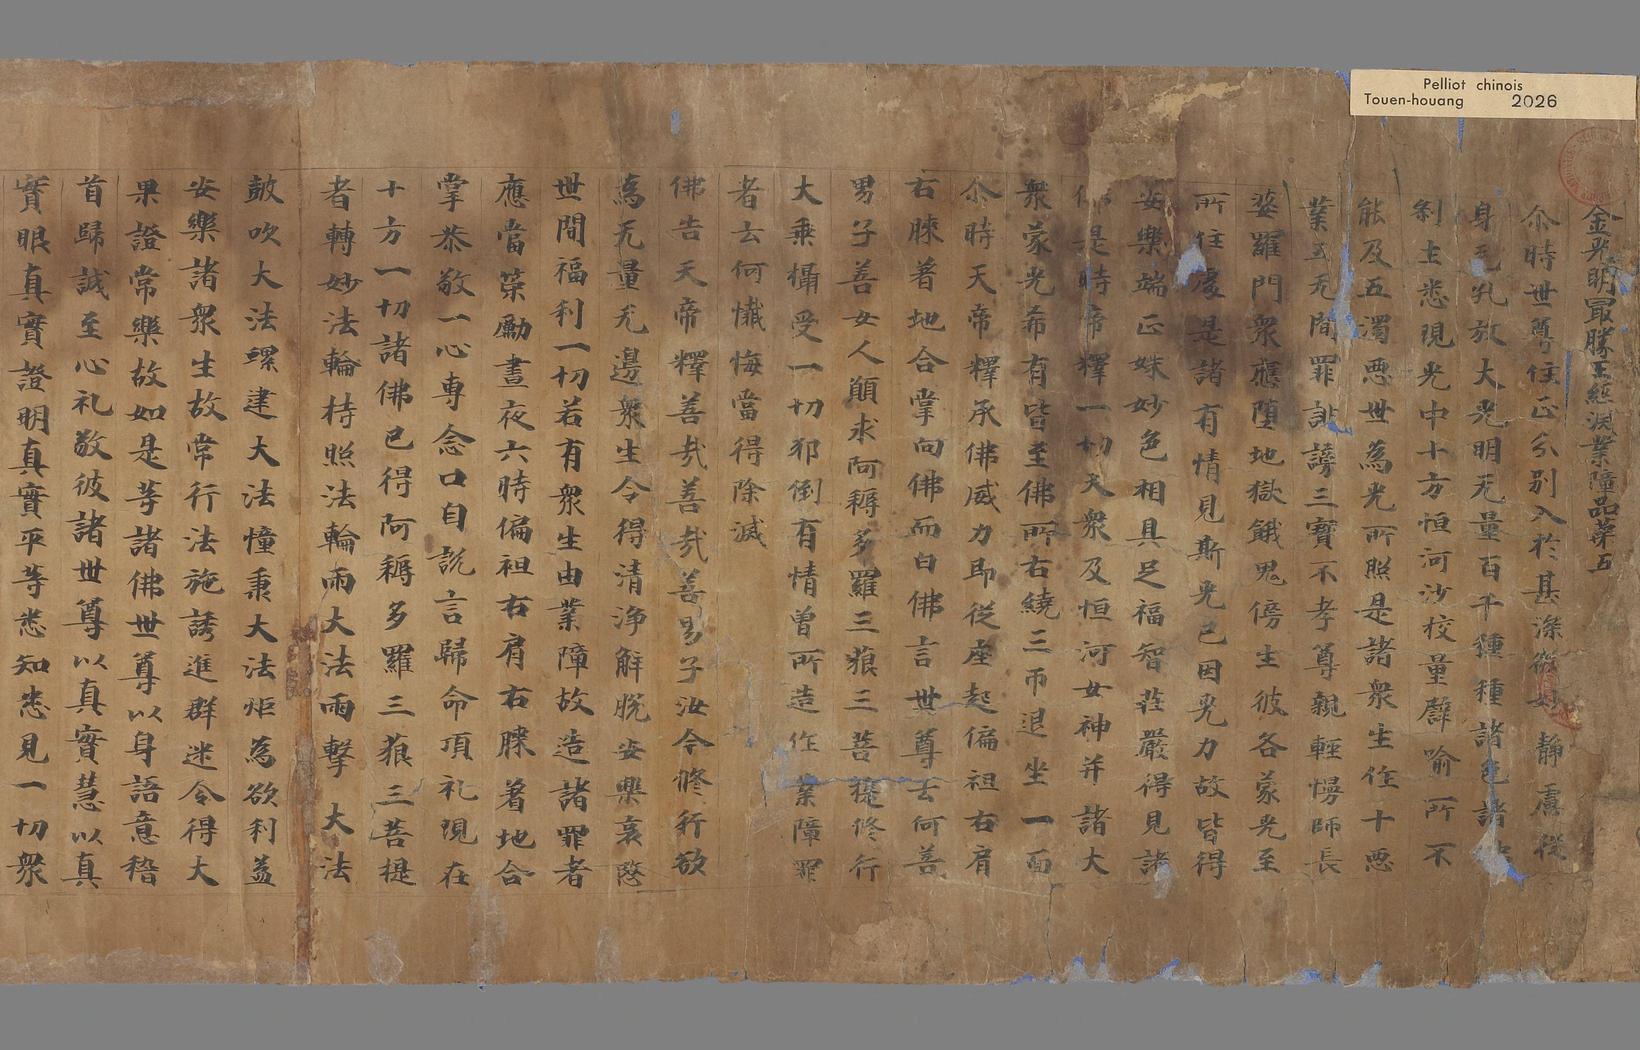 Pelliot chinois
Touen-houang 2026
金光明最勝王經滅業障品第五
尒時世尊住正分別入於甚深微妙靜慮從
身毛孔放大光明无量百千種種諸色諸
剎土悉現光中十方恒河沙校量譬喻所不
能及五濁惡世為光所照是諸眾生作十惡
業五无間罪誹謗三寶不孝尊親輕慢師長
婆羅門眾應墮地獄餓鬼傍生彼各蒙光至
所住處是諸有情見斯光已因光力故皆得
安樂端正姝妙色相具足福智莊嚴得見諸
佛是時帝釋一切天眾及恒河女神并諸大
眾蒙光希有皆至佛所右繞三帀退坐一面
尒時天帝釋承佛威力即從座起偏袒右肩
右膝著地合掌向佛而白佛言世尊云何善
男子善女人願求阿耨多羅三藐三菩提修行
大乘攝受一切邪倒有情曾所造作業障罪
者云何懺悔當得除滅
佛告天帝釋善哉善哉善男子汝今修行欲
為无量无邊眾生令得清淨解脫安樂哀愍
世間福利一切若有眾生由業障故造諸罪者
應當策勵晝夜六時偏袒右肩右膝著地合
掌恭敬一心專念口自說言歸命頂礼現在
十方一切諸佛已得阿耨多羅三藐三菩提
者轉妙法輪持照法輪雨大法雨擊大法
鼓吹大法螺建大法幢秉大法炬為欲利益
安樂諸眾生故常行法施誘進群迷令得大
果證常樂故如是等諸佛世尊以身語意稽
首歸誠至心礼敬彼諸世尊以真實慧以真
實眼真實證明真實平等悉知悉見一切眾